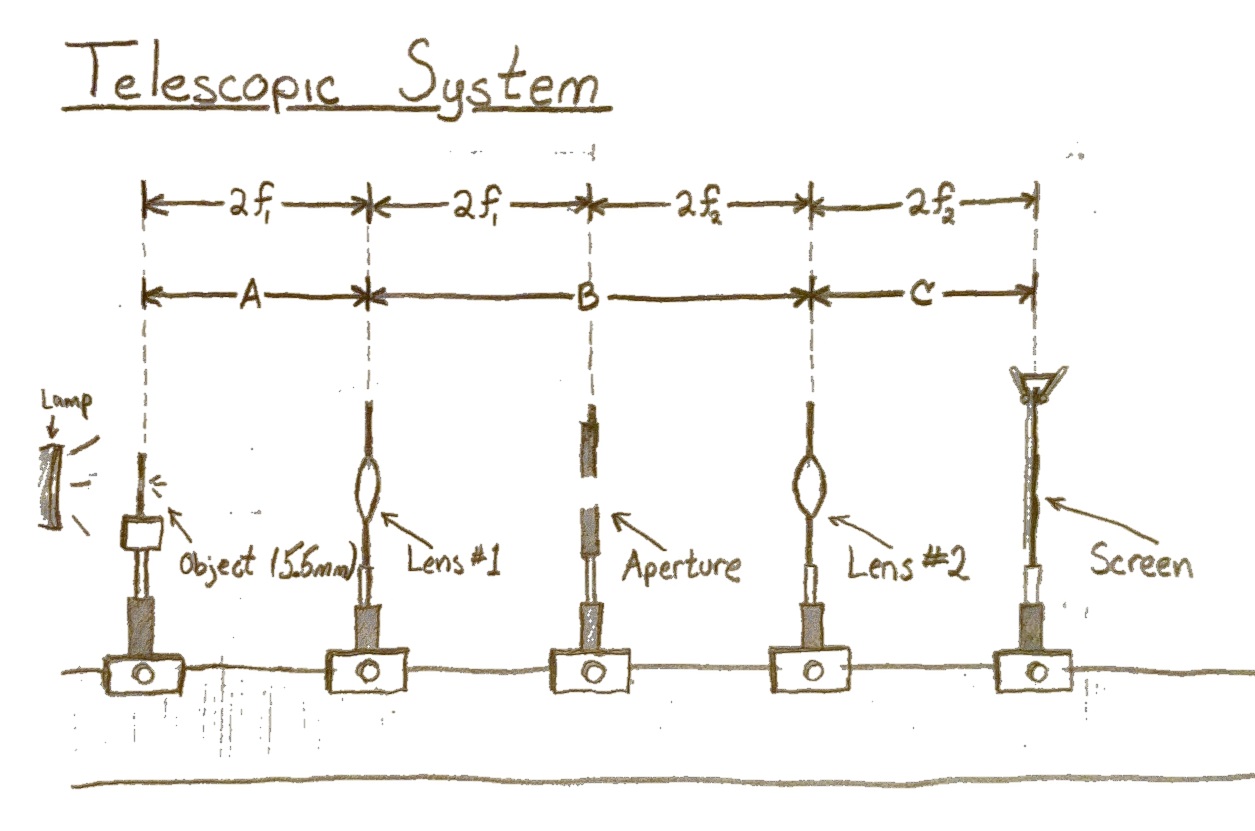 Telescopic System
2f₁ 2f₁ 2f₂ 2f₂
A B C
Lamp
Object (5.5mm)
Lens #1
Aperture
Lens #2
Screen